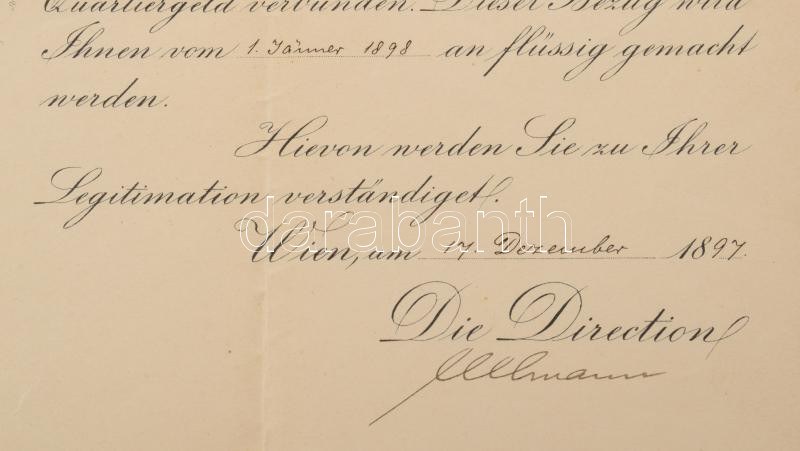 Quartiergeld verbunden. Dieser Bezug wird
Ihnen vom 1. Jänner 1898 an flüssig gemacht
werden.
Hievon werden Sie zu Ihrer
Legitimation verständiget.
darabanth
Wien, am 17. Dezember 1897.
Die Direction